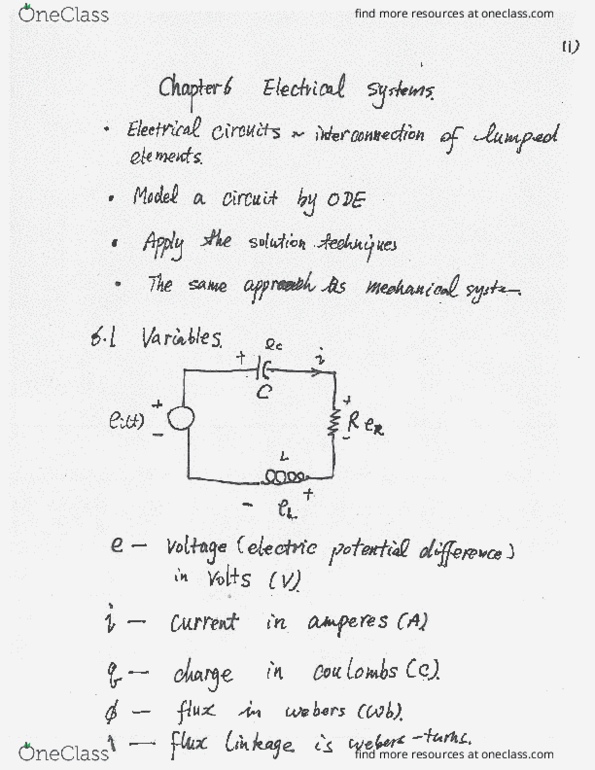 OneClass
find more resources at oneclass.com
(i)
Chapter 6 Electrical Systems.
• Electrical circuits ~ interconnection of lumped
elements.
• Model a circuit by ODE
• Apply the solution techniques
• The same approach as mechanical system.
6.1 Variables.
+ ec i
C
+ ei(t) -
+ R eR -
L
- eL +
e — voltage (electric potential difference)
in volts (V).
i — current in amperes (A)
q — charge in coulombs (C).
ϕ — flux in webers (Wb).
— flux linkage is webers-turns.
OneClass
find more resources at oneclass.com